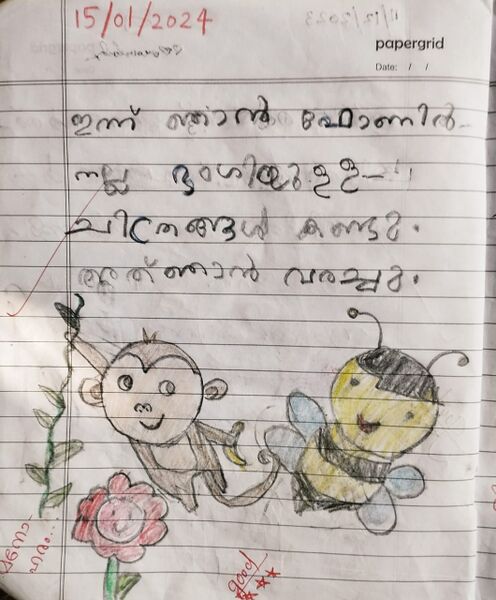 15/01/2024
papergrid
Date: / /
ഇന്ന് ഞാൻ ഫോണിൽ
നല്ല ഭംഗിയുള്ള
ചിത്രങ്ങൾ കണ്ടു.
അത് ഞാൻ വരച്ചു.
മനോ-
ഹരം...
good